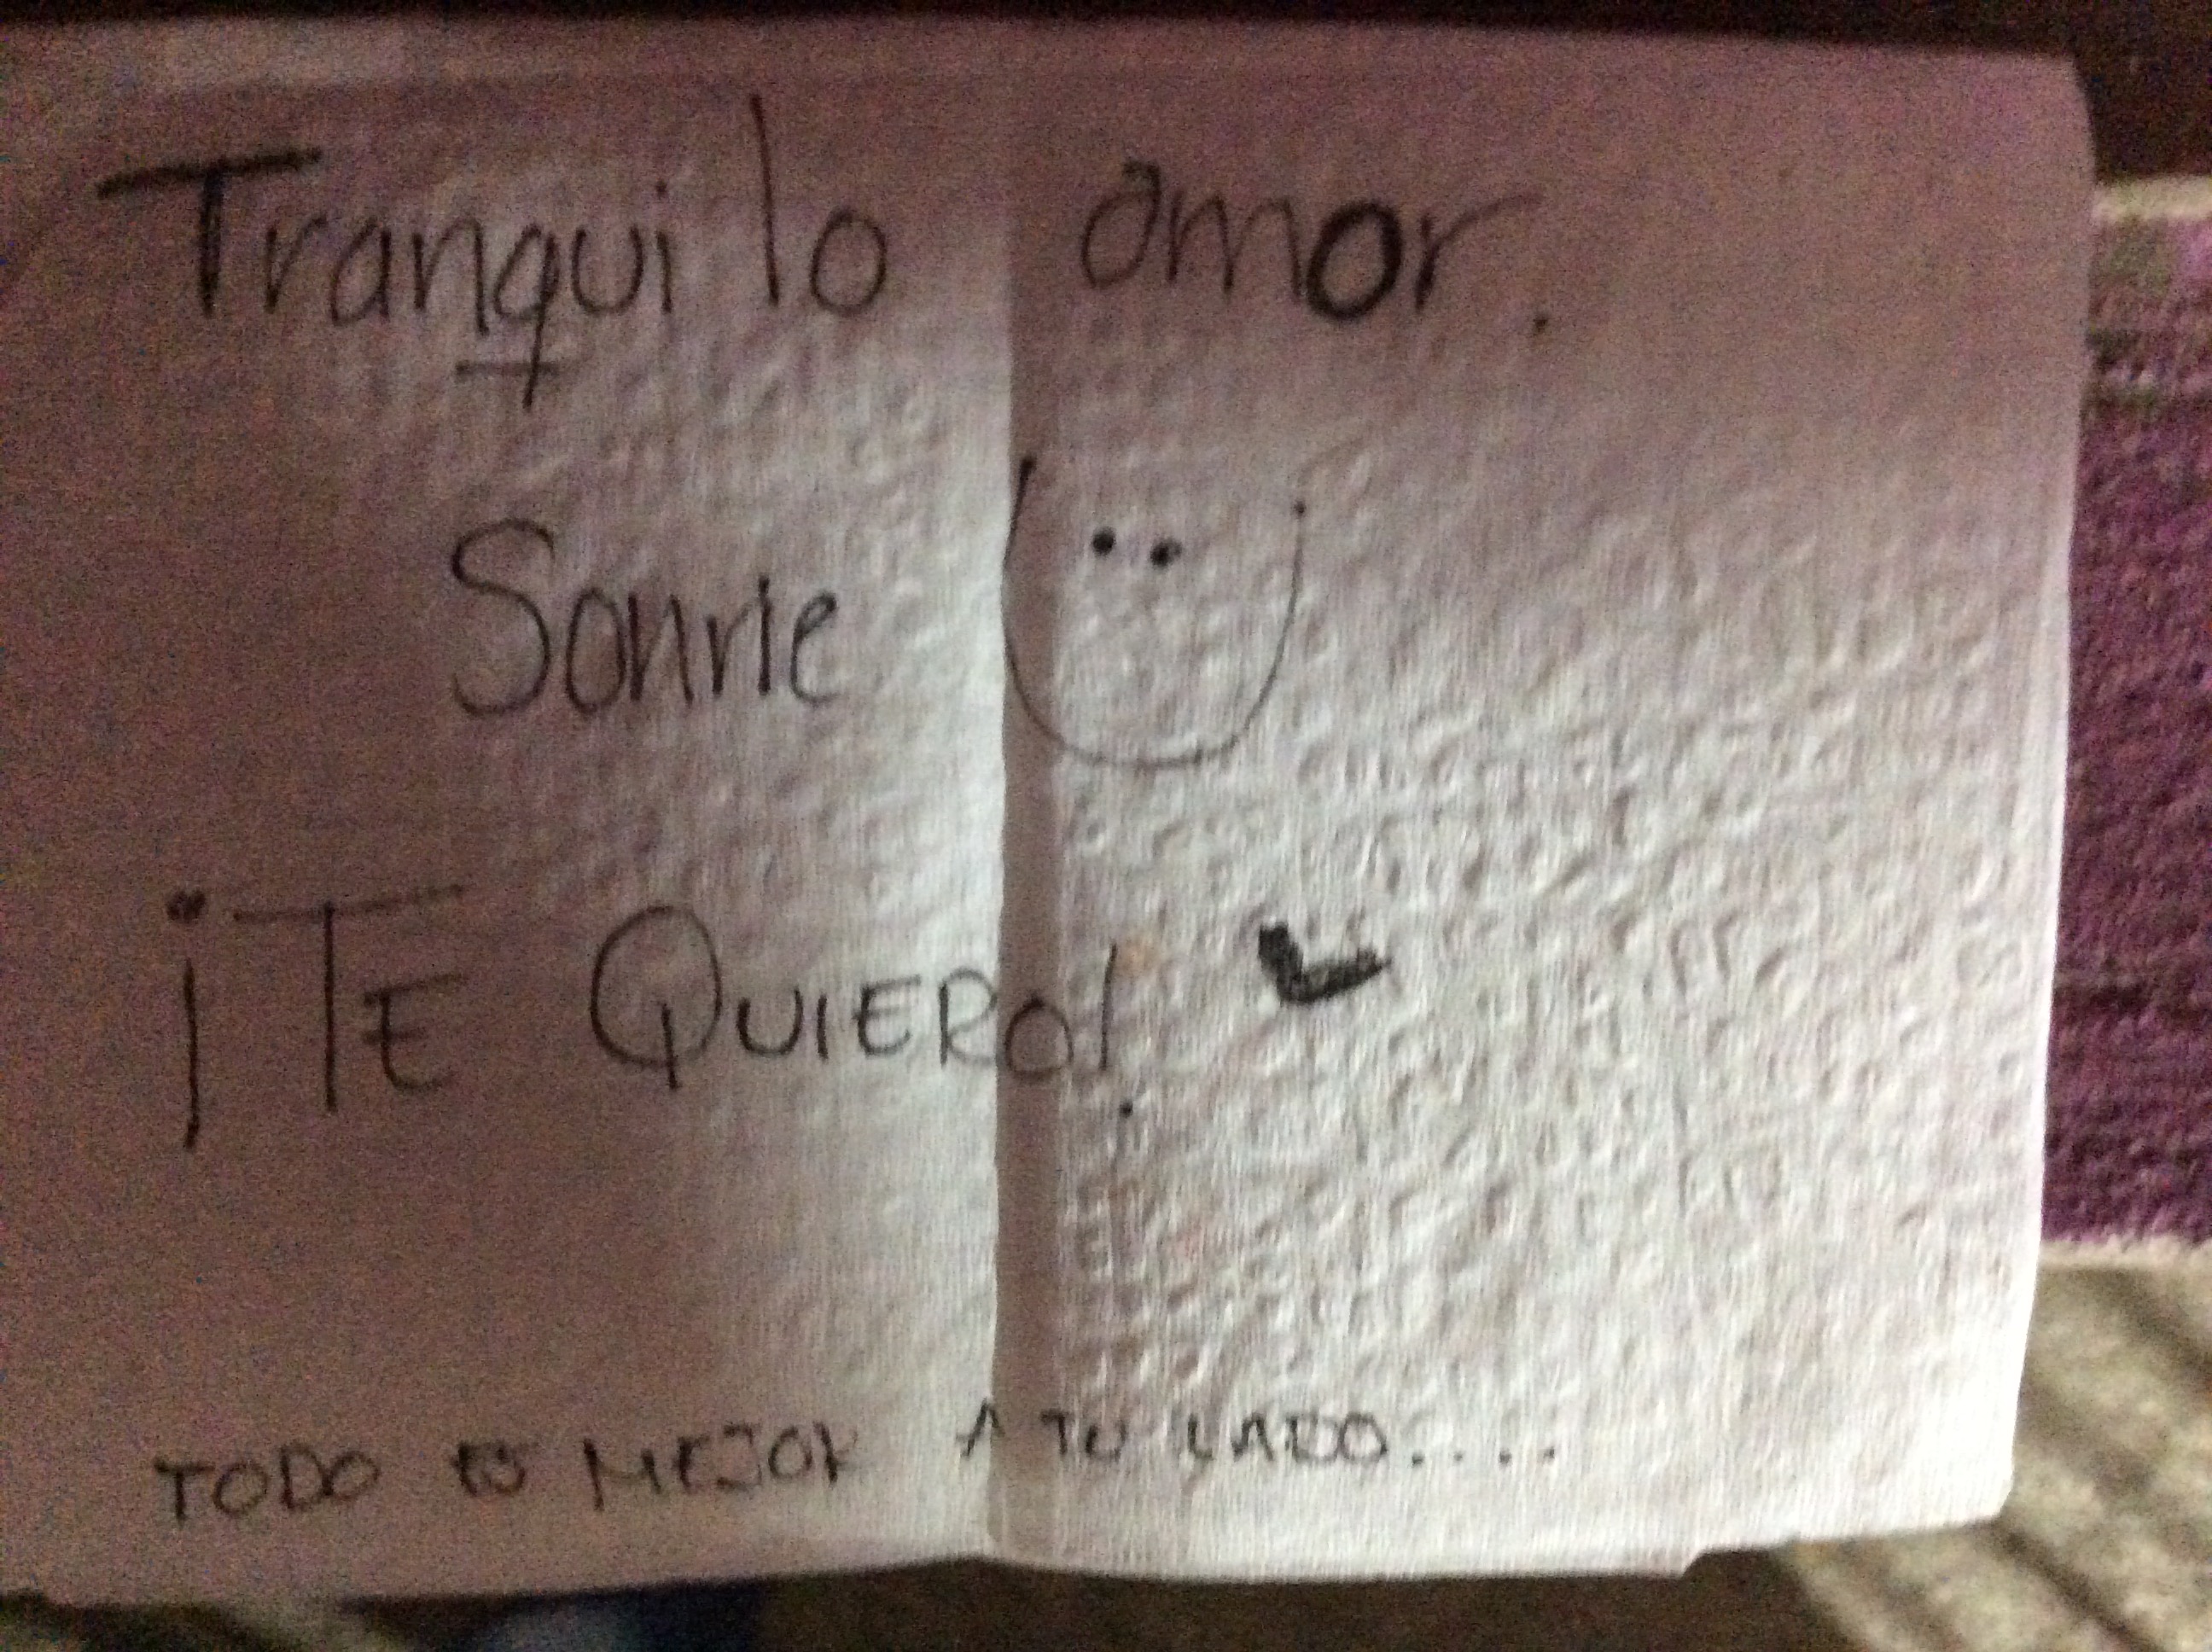 Tranquilo amor.
Sonrie
¡TE QUIERO!
TODO ES MEJOR A TU LADO....